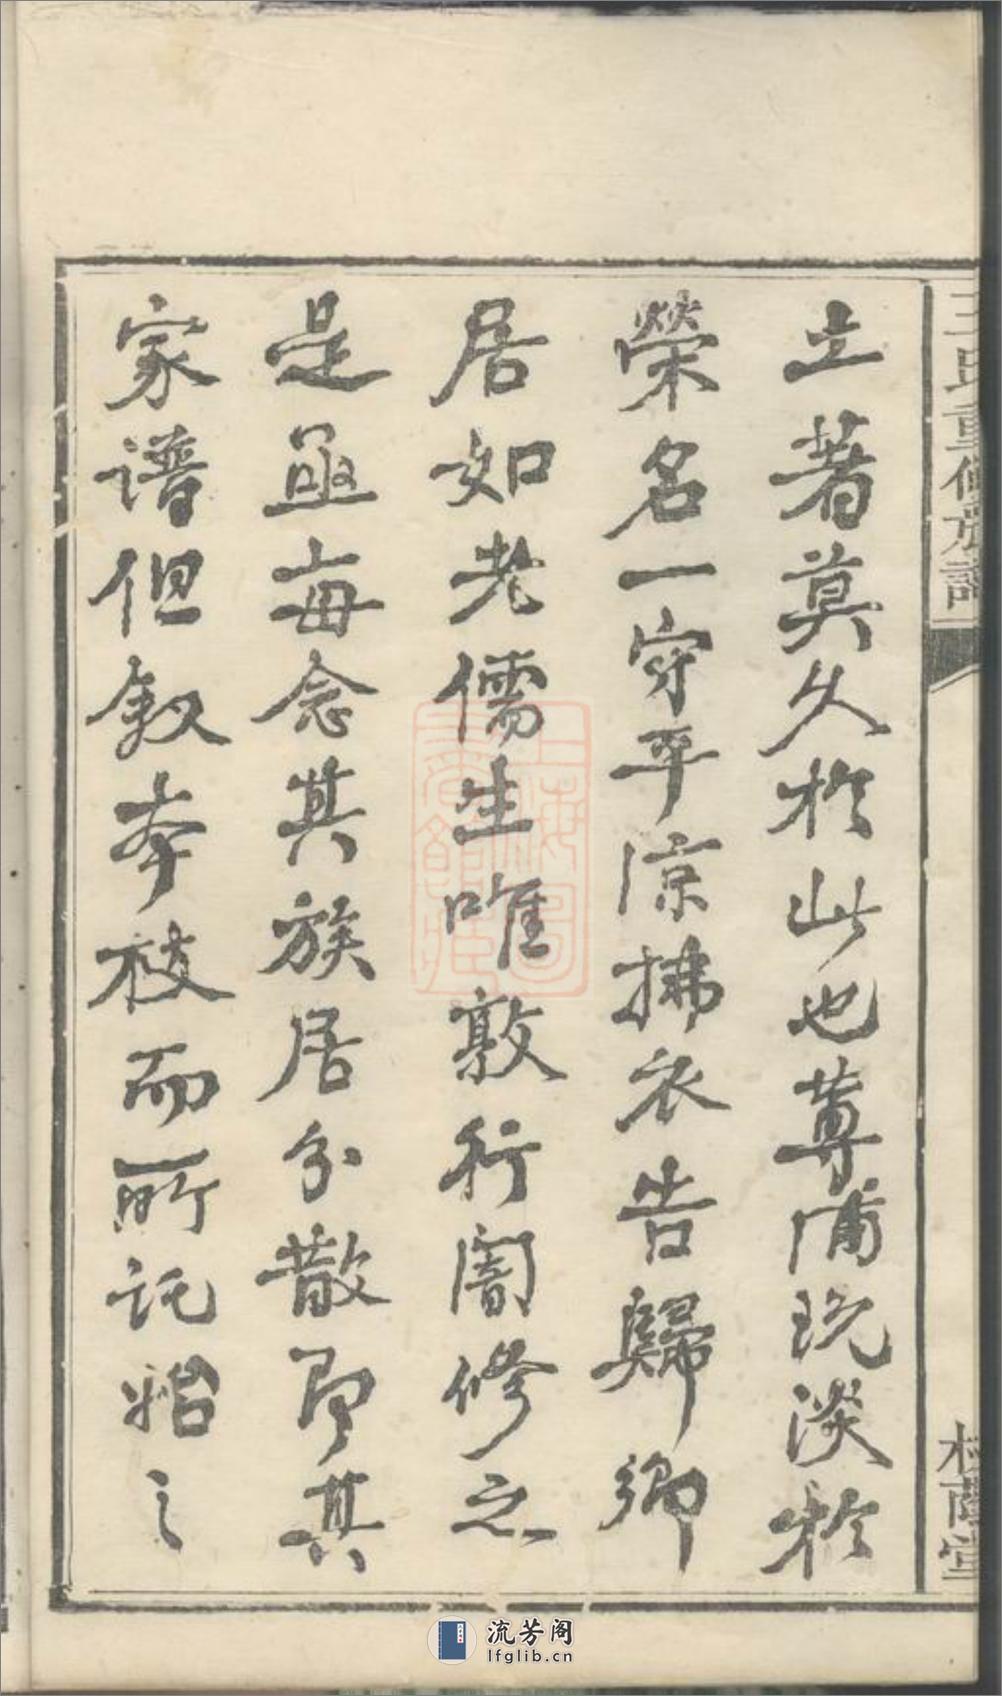 立著莫久於此也尊甫既淡於
榮名一守平涼拂衣告歸鄉
居如老儒生唯敦行闇修之
是亟每念其族居分散即其
家譜但敘本枝而所託始之
王氏重修族譜
槐蔭堂
上海圖書館藏
流芳阁
lfglib.cn